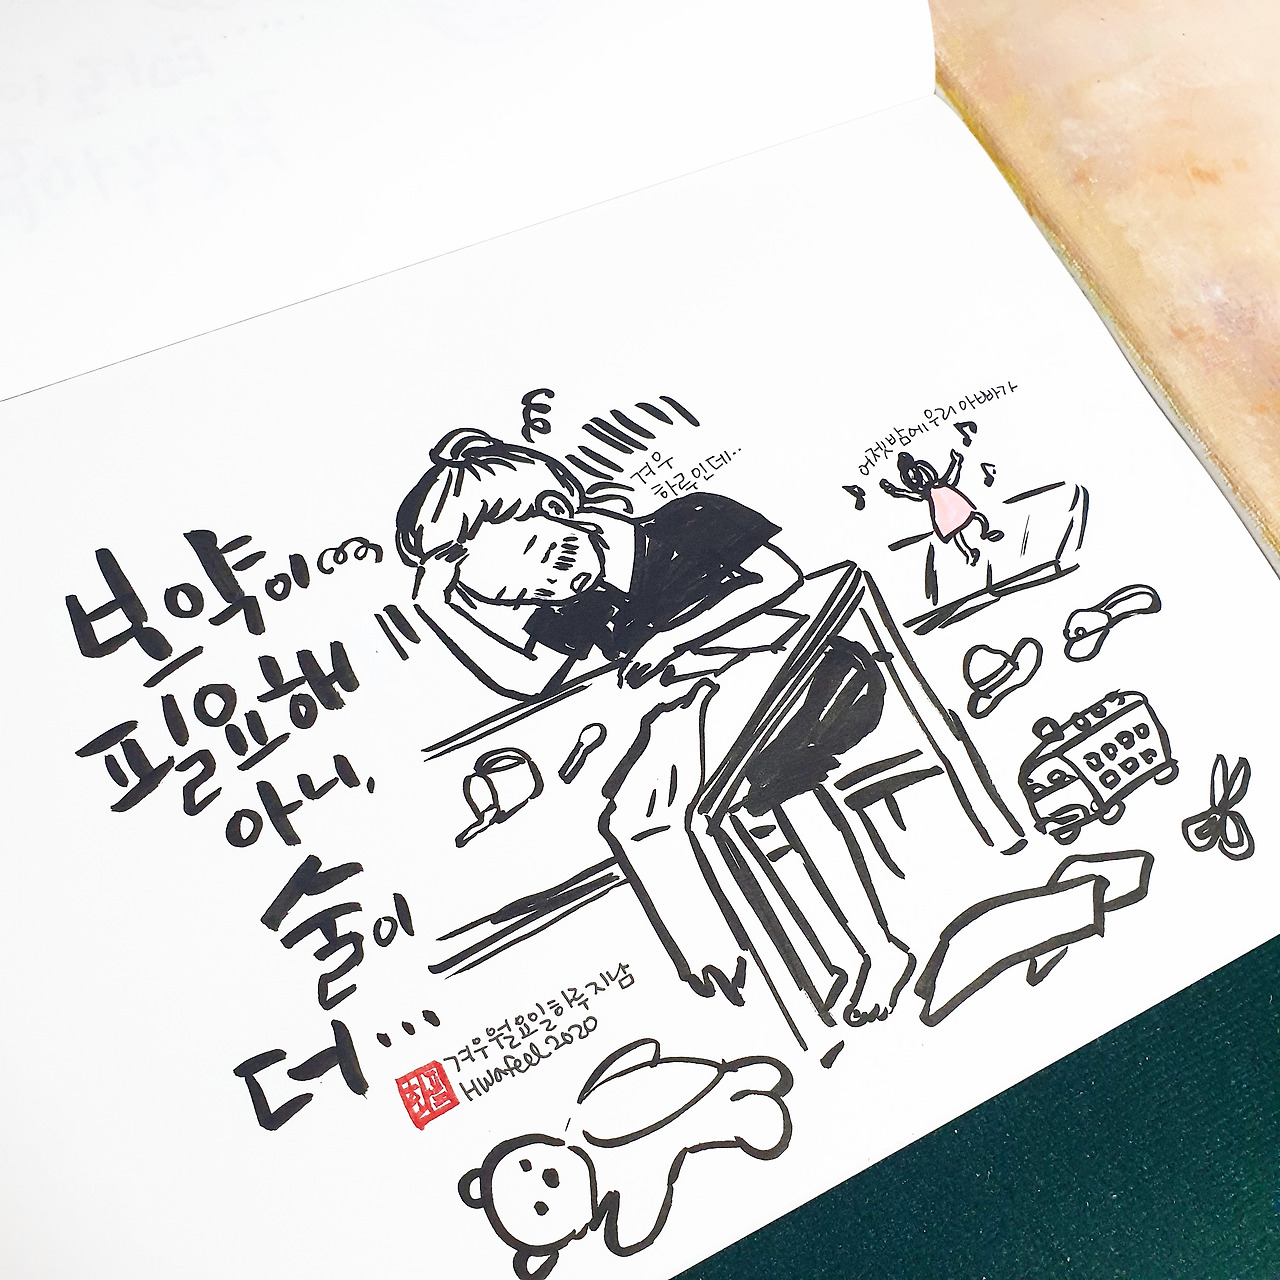 보약이
필요해
아니,
술이
더...
겨우
하루인데..
어젯밤에 우리 아빠가
겨우 월요일 하루 지남
Hwafeel 2020
화필